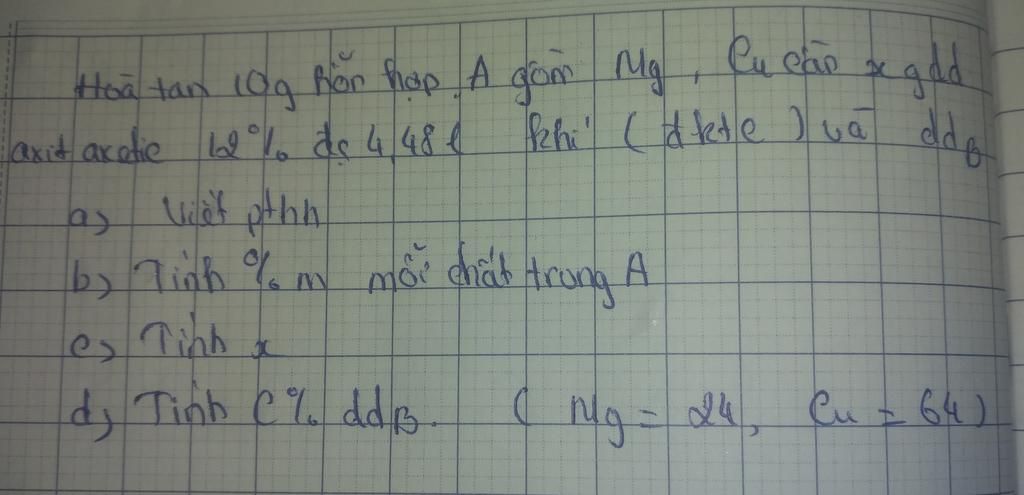 Hoà tan 10g hỗn hợp A gồm Mg, Cu cần x g dd
axit axetic 12% đc 4,48l khí (đktc) và ddB
a) Viết pthh
b) Tính % m mỗi chất trong A
c) Tính x
d) Tính C% ddB. ( Mg = 24, Cu = 64)